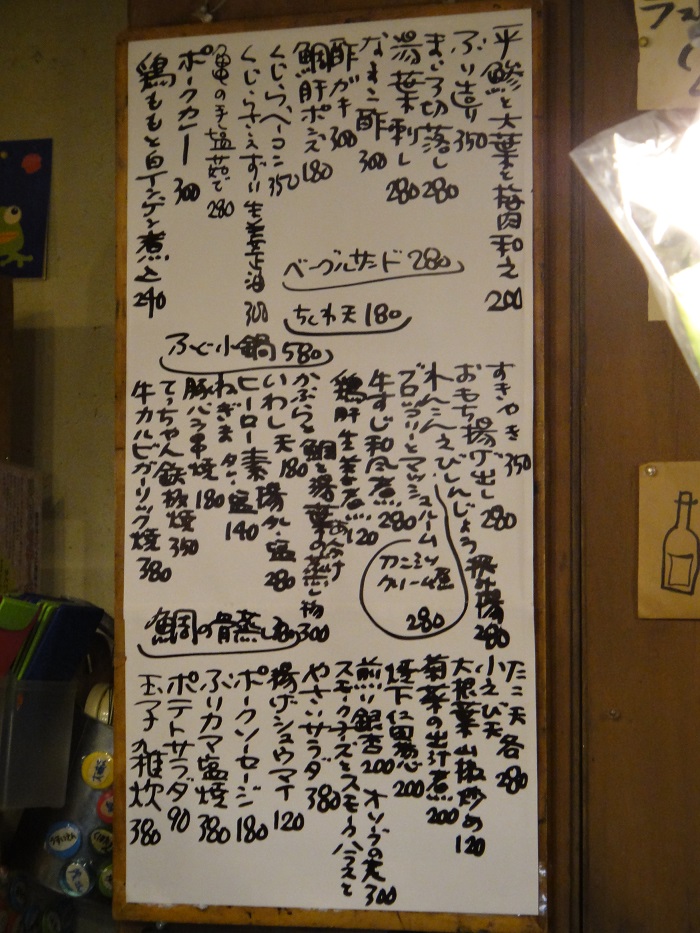 平鯵と大葉と梅肉和え 200
ぶり造り 350
まぐろ切落し 280
湯葉刺し 280
なまこ酢 300
酢ガキ 300
鯛肝ポン酢 180
くじらベーコン 350
くじらさえずり生姜正油 300
亀の手塩茹で 280
ポークカレー 300
鶏ももと白インゲン煮込 240
ベーグルサンド 280
ちくわ天 180
ふぐ小鍋 580
すきやき 350
おもち揚げ出し 280
れんこんえびしんじょう飛龍揚 280
ブロッコリーとマッシュルーム
カニミソ
クリーム煮
280
牛すじ和風煮 280
鶏肝生姜煮 120
かぶらと鯛と湯葉の蒸し物 300
いわし天 180
ヒーロー素揚タレ・塩 280
ねぎまタレ・塩 140
豚バラ串焼 180
てっちゃん鉄板焼 350
牛カルビガーリック焼 380
鯛の骨蒸し 380
たこ天
小えび天 各280
大根葉山椒炒め 120
菊菜の出汁煮 200
煙下仁田葱 200
煎り銀杏 200
スモークチーズとスモークハラスと
オリーブの実 300
やさいサラダ 380
揚げシュウマイ 120
ポークソーセージ 180
ぶりカマ塩焼 380
ポテトサラダ 90
玉子の雑炊 380